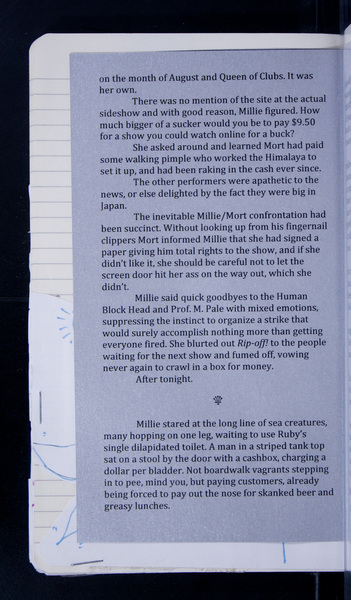 on the month of August and Queen of Clubs. It was
her own.
There was no mention of the site at the actual
sideshow and with good reason, Millie figured. How
much bigger of a sucker would you be to pay $9.50
for a show you could watch online for a buck?
She asked around and learned Mort had paid
some walking pimple who worked the Himalaya to
set it up, and had been raking in the cash ever since.
The other performers were apathetic to the
news, or else delighted by the fact they were big in
Japan.
The inevitable Millie/Mort confrontation had
been succinct. Without looking up from his fingernail
clippers Mort informed Millie that she had signed a
paper giving him total rights to the show, and if she
didn't like it, she should be careful not to let the
screen door hit her ass on the way out, which she
didn't.
Millie said quick goodbyes to the Human
Block Head and Prof. M. Pale with mixed emotions,
suppressing the instinct to organize a strike that
would surely accomplish nothing more than getting
everyone fired. She blurted out Rip-off! to the people
waiting for the next show and fumed off, vowing
never again to crawl in a box for money.
After tonight.
Millie stared at the long line of sea creatures,
many hopping on one leg, waiting to use Ruby's
single dilapidated toilet. A man in a striped tank top
sat on a stool by the door with a cashbox, charging a
dollar per bladder. Not boardwalk vagrants stepping
in to pee, mind you, but paying customers, already
being forced to pay out the nose for skanked beer and
greasy lunches.